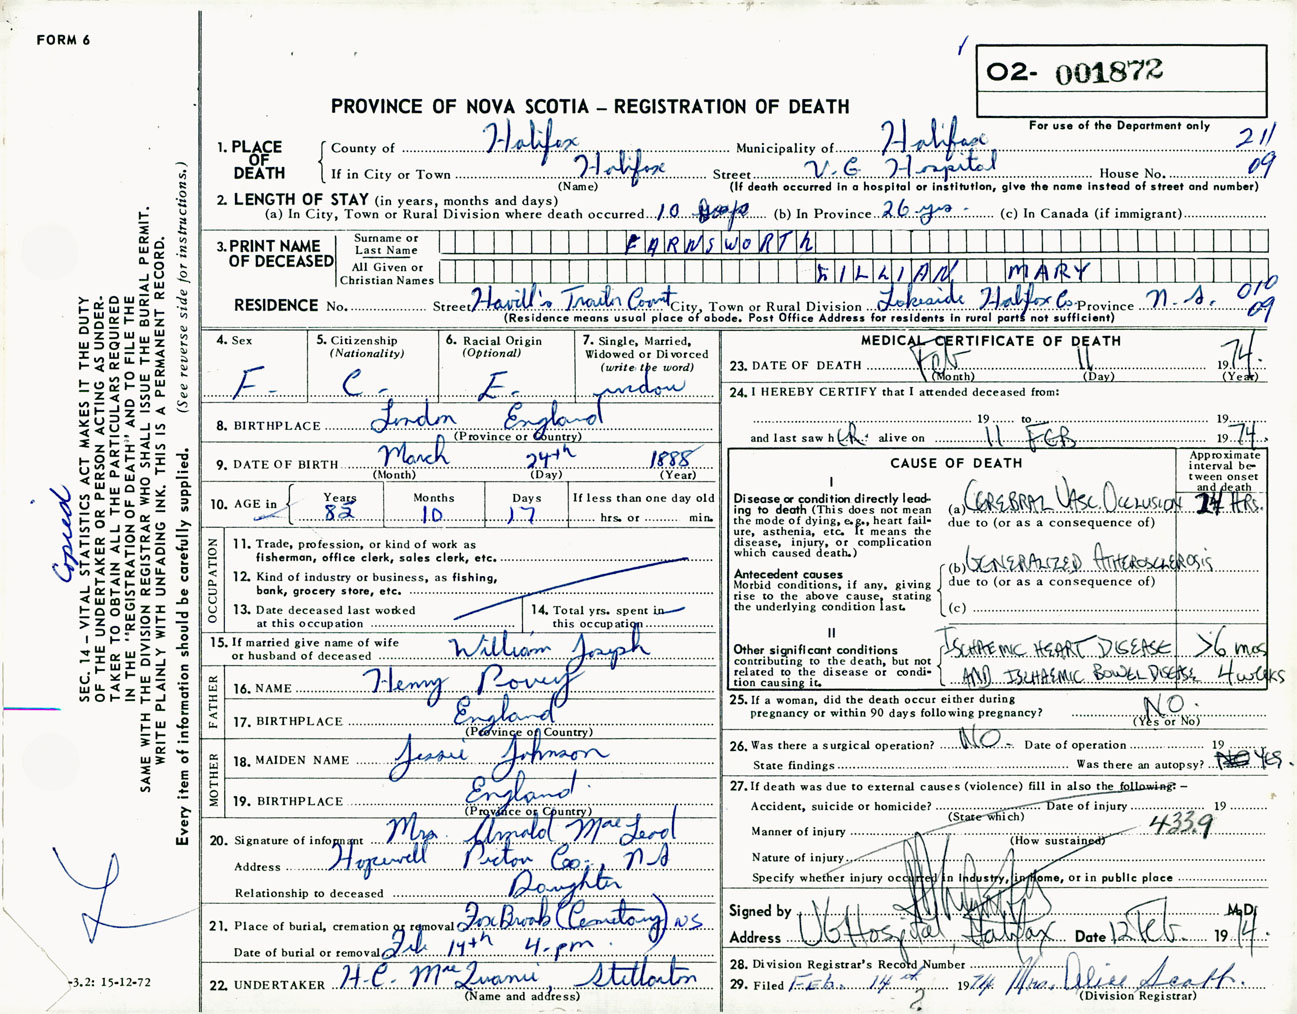 FORM 6
O2- 001872
PROVINCE OF NOVA SCOTIA – REGISTRATION OF DEATH
For use of the Department only
211
09
1. PLACE OF DEATH
County of Halifax Municipality of Halifax
If in City or Town Halifax Street V. G Hospital House No.
(Name) (If death occurred in a hospital or institution, give the name instead of street and number)
2. LENGTH OF STAY (in years, months and days)
(a) In City, Town or Rural Division where death occurred 10 days (b) In Province 26 yrs. (c) In Canada (if immigrant)
3. PRINT NAME OF DECEASED
Surname or Last Name FARNSWORTH
All Given or Christian Names LILLIAN MARY
RESIDENCE No. Street Havill's Trailer Court City, Town or Rural Division Lakeside Halifax Co Province N. S.
010
09
(Residence means usual place of abode. Post Office Address for residents in rural parts not sufficient)
4. Sex
F.
5. Citizenship
(Nationality)
C.
6. Racial Origin
(Optional)
E.
7. Single, Married,
Widowed or Divorced
(write the word)
widow
8. BIRTHPLACE London England
(Province or Country)
9. DATE OF BIRTH March 24th 1888
(Month) (Day) (Year)
10. AGE in Years Months Days If less than one day old
10 17 hrs. or min.
OCCUPATION
11. Trade, profession, or kind of work as
fisherman, office clerk, sales clerk, etc.
12. Kind of industry or business, as fishing,
bank, grocery store, etc.
13. Date deceased last worked
at this occupation
14. Total yrs. spent in
this occupation
15. If married give name of wife
or husband of deceased William Joseph
FATHER
16. NAME Henry Povey
17. BIRTHPLACE England
(Province or Country)
MOTHER
18. MAIDEN NAME Jessie Johnson
19. BIRTHPLACE England
(Province or Country)
20. Signature of informant Mrs. Arnold MacLeod
Address Hopewell Pictou Co., NS
Relationship to deceased Daughter
21. Place of burial, cremation or removal Fox Brook (Cemetary) NS
Date of burial or removal Feb 14th 4. pm.
22. UNDERTAKER H. C. MacQuarrie, Stellarton
(Name and address)
MEDICAL CERTIFICATE OF DEATH
23. DATE OF DEATH Feb 11 1974.
(Month) (Day) (Year)
24. I HEREBY CERTIFY that I attended deceased from:
19 to 19
and last saw her alive on 11 FEB 1974.
CAUSE OF DEATH
Approximate
interval be-
tween onset
and death
I
Disease or condition directly lead-
ing to death (This does not mean
the mode of dying, e.g., heart fail-
ure, asthenia, etc. It means the
disease, injury, or complication
which caused death.)
(a) CEREBRAL VASC. OCCLUSION 24 HRS.
due to (or as a consequence of)
Antecedent causes
Morbid conditions, if any, giving
rise to the above cause, stating
the underlying condition last.
(b) GENERALIZED ATHEROSCLEROSIS
due to (or as a consequence of)
(c)
II
Other significant conditions
contributing to the death, but not
related to the disease or condi-
tion causing it.
ISCHAEMIC HEART DISEASE >6 mos
AND ISCHAEMIC BOWEL DISEASE 4 weeks
25. If a woman, did the death occur either during
pregnancy or within 90 days following pregnancy? NO.
(Yes or No)
26. Was there a surgical operation? NO. Date of operation 19
State findings Was there an autopsy? YES.
27. If death was due to external causes (violence) fill in also the following: –
Accident, suicide or homicide? Date of injury 19
(State which)
Manner of injury 433.9
(How sustained)
Nature of injury
Specify whether injury occurred in Industry, in home, or in public place
Signed by M.D.
Address VG Hospital, Halifax Date 12 Feb. 1974.
28. Division Registrar's Record Number
29. Filed FEB. 14th 1974 Mrs. Alice Scott.
(Division Registrar)
2
Copied
SEC. 14 – VITAL STATISTICS ACT MAKES IT THE DUTY
OF THE UNDERTAKER OR PERSON ACTING AS UNDER-
TAKER TO OBTAIN ALL THE PARTICULARS REQUIRED
IN THE "REGISTRATION OF DEATH" AND TO FILE THE
SAME WITH THE DIVISION REGISTRAR WHO SHALL ISSUE THE BURIAL PERMIT.
WRITE PLAINLY WITH UNFADING INK. THIS IS A PERMANENT RECORD.
Every item of information should be carefully supplied. (See reverse side for instructions.)
-3.2: 15-12-72